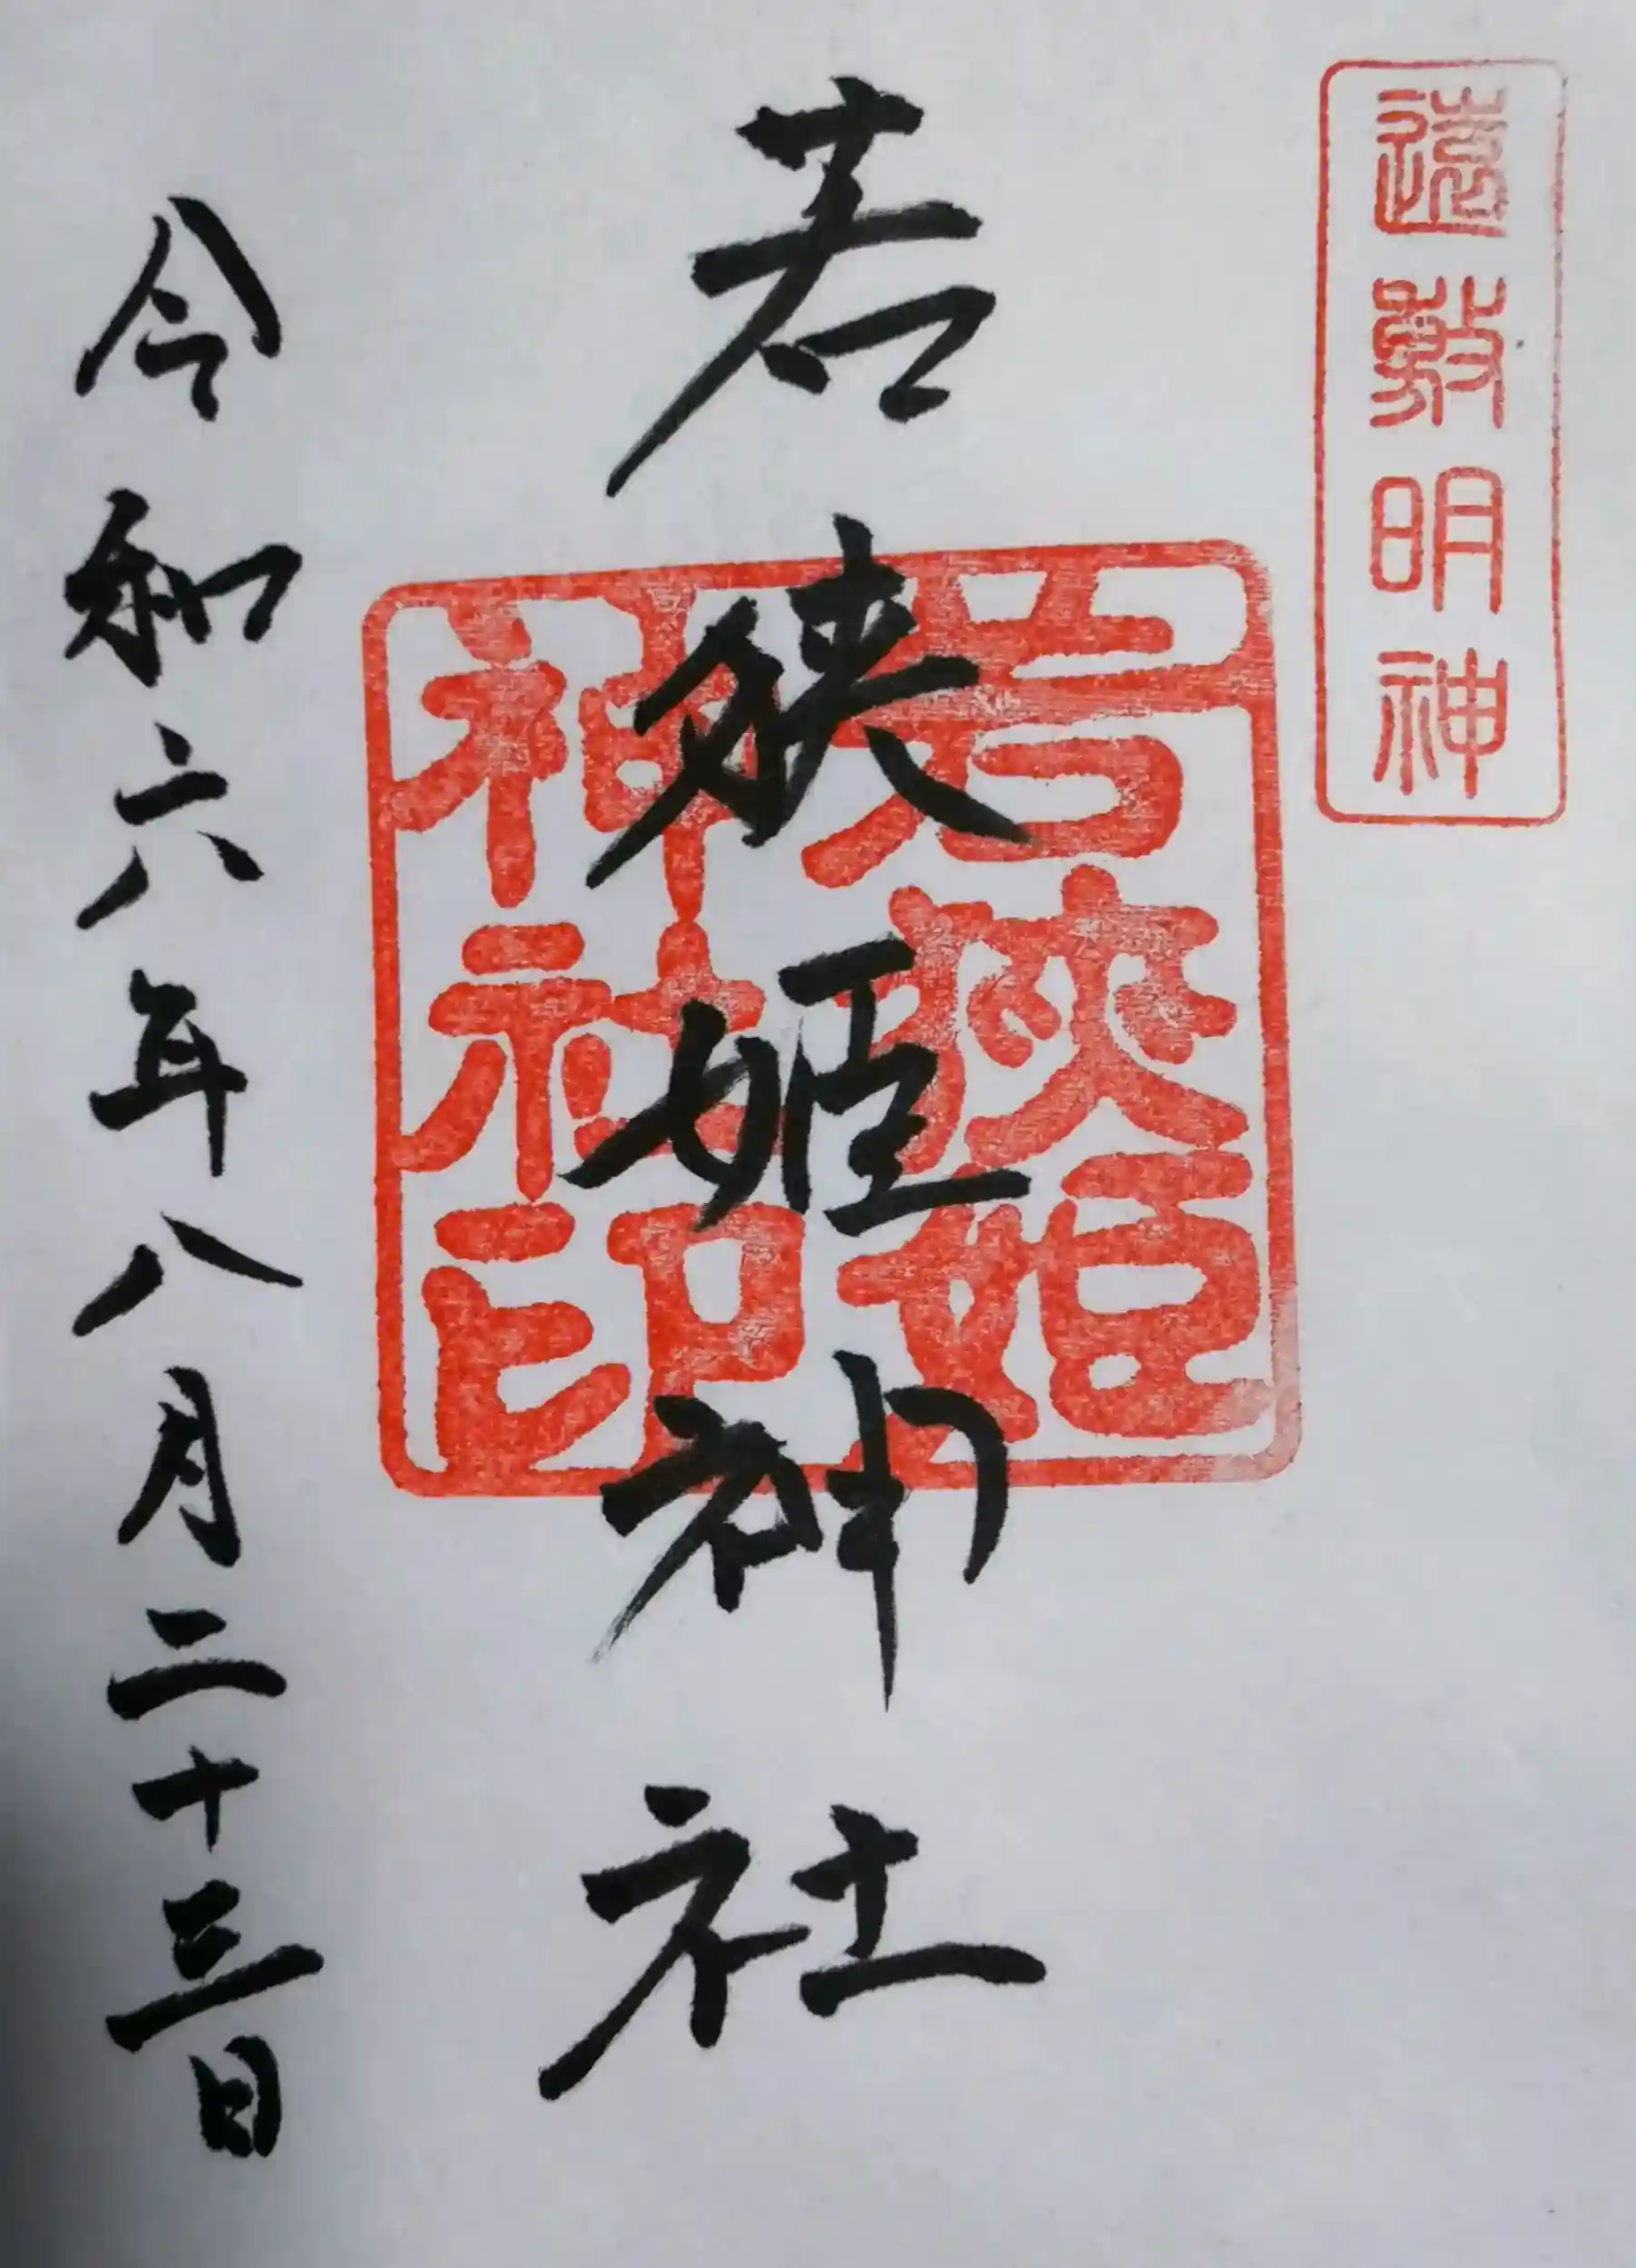 遠敷明神
若狹姫神社
若狹姫
神社印
令和六年八月二十三日